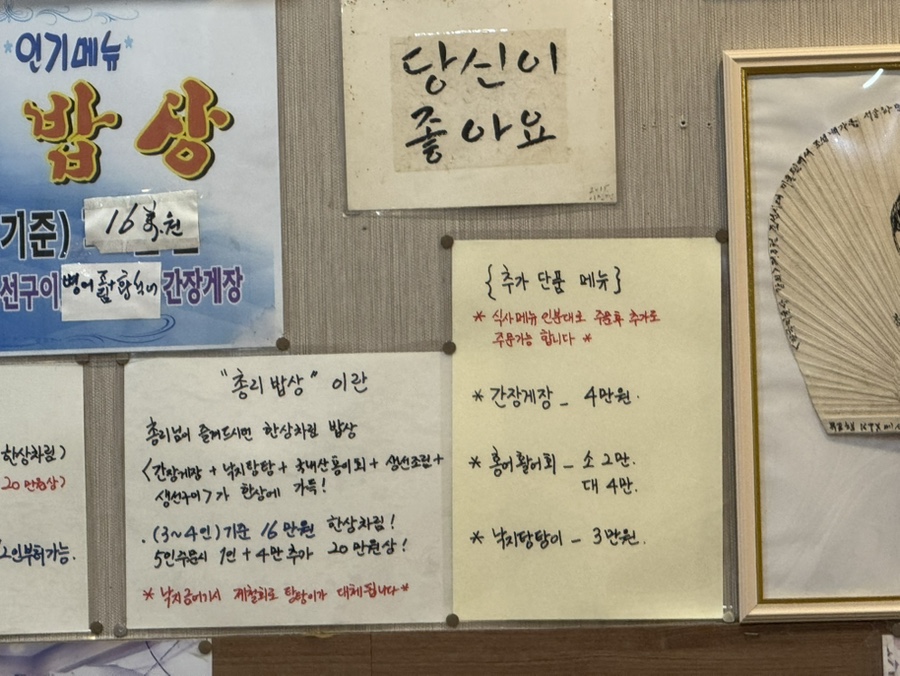 인기메뉴
밥상
기준) 16萬원
선구이 병어 간장게장
당신이
좋아요
2015
한상차림>
20만원상>
2인부터가능.
"총리밥상" 이란
총리님이 즐겨드시면 한상차림 밥상
<간장게장 + 낙지탕탕 + 국내산홍어회 + 생선조림 +
생선구이>가 한상에 가득!
. (3~4인)기준 16만원 한상차림!
5인주문시 1인 + 4만 추가 20만원상!
* 낙지금어기시 제철회로 탕탕이가 대체됩니다 *
{추가 단품 메뉴}
* 식사메뉴 인분대로 주문후 추가로
주문가능 합니다 *
* 간장게장 - 4만원.
* 홍어활어회 - 소 2만.
대 4만.
* 낙지탕탕이 - 3만원.